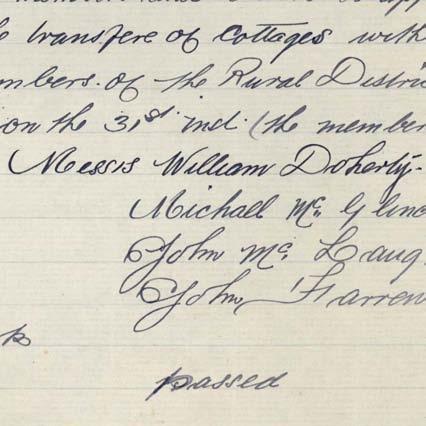 the transfere of Cottages with
mbers. of the Rural Distric
on the 31st inst. (the member
Messrs William Doherty.
Michael Mc. Glinc
John Mc. Laug
John Farren
passed